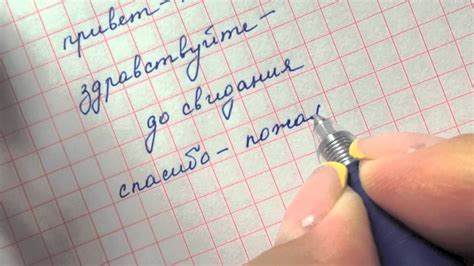 привет-
здравствуйте-
до свидания
спасибо- пожал